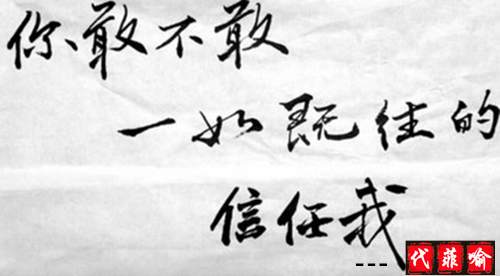 你敢不敢
一如既往的
信任我
---代菲喻